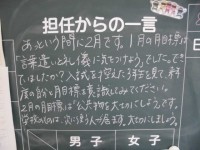 担任からの一言
あっという間に2月です。1月の月目標は
「言葉遣いとあいさつ儀に気をつけよう」でした。
できていましたか?入試を控えた3年生を見て、来年
度の自分と月目標を意識してみてくださいね。
2月の月目標は「公共物を大切にしよう」です。
学校のものは、次に使う人が居ます。大切にしましょう。
男子 女子
日